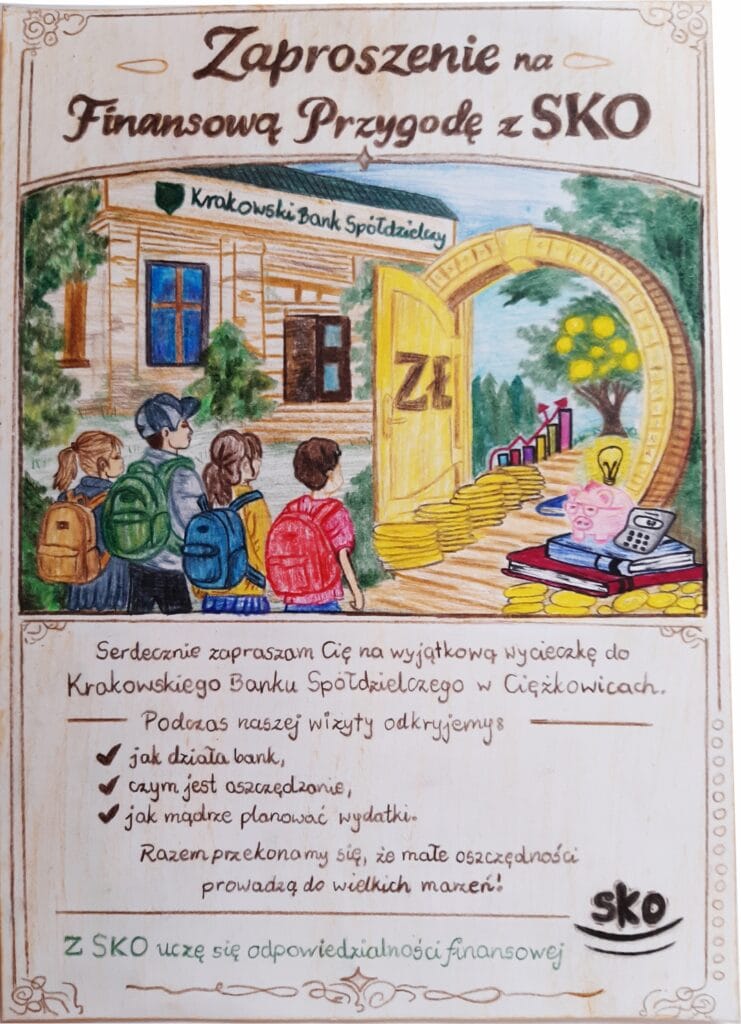 Zaproszenie na
Finansową Przygodę z SKO
Krakowski Bank Spółdzielczy
ZŁ
Serdecznie zapraszam Cię na wyjątkową wycieczkę do
Krakowskiego Banku Spółdzielczego w Ciężkowicach.
Podczas naszej wizyty odkryjemy:
✔ jak działa bank,
✔ czym jest oszczędzanie,
✔ jak mądrze planować wydatki.
Razem przekonamy się, że małe oszczędności
prowadzą do wielkich marzeń!
SKO
Z SKO uczę się odpowiedzialności finansowej